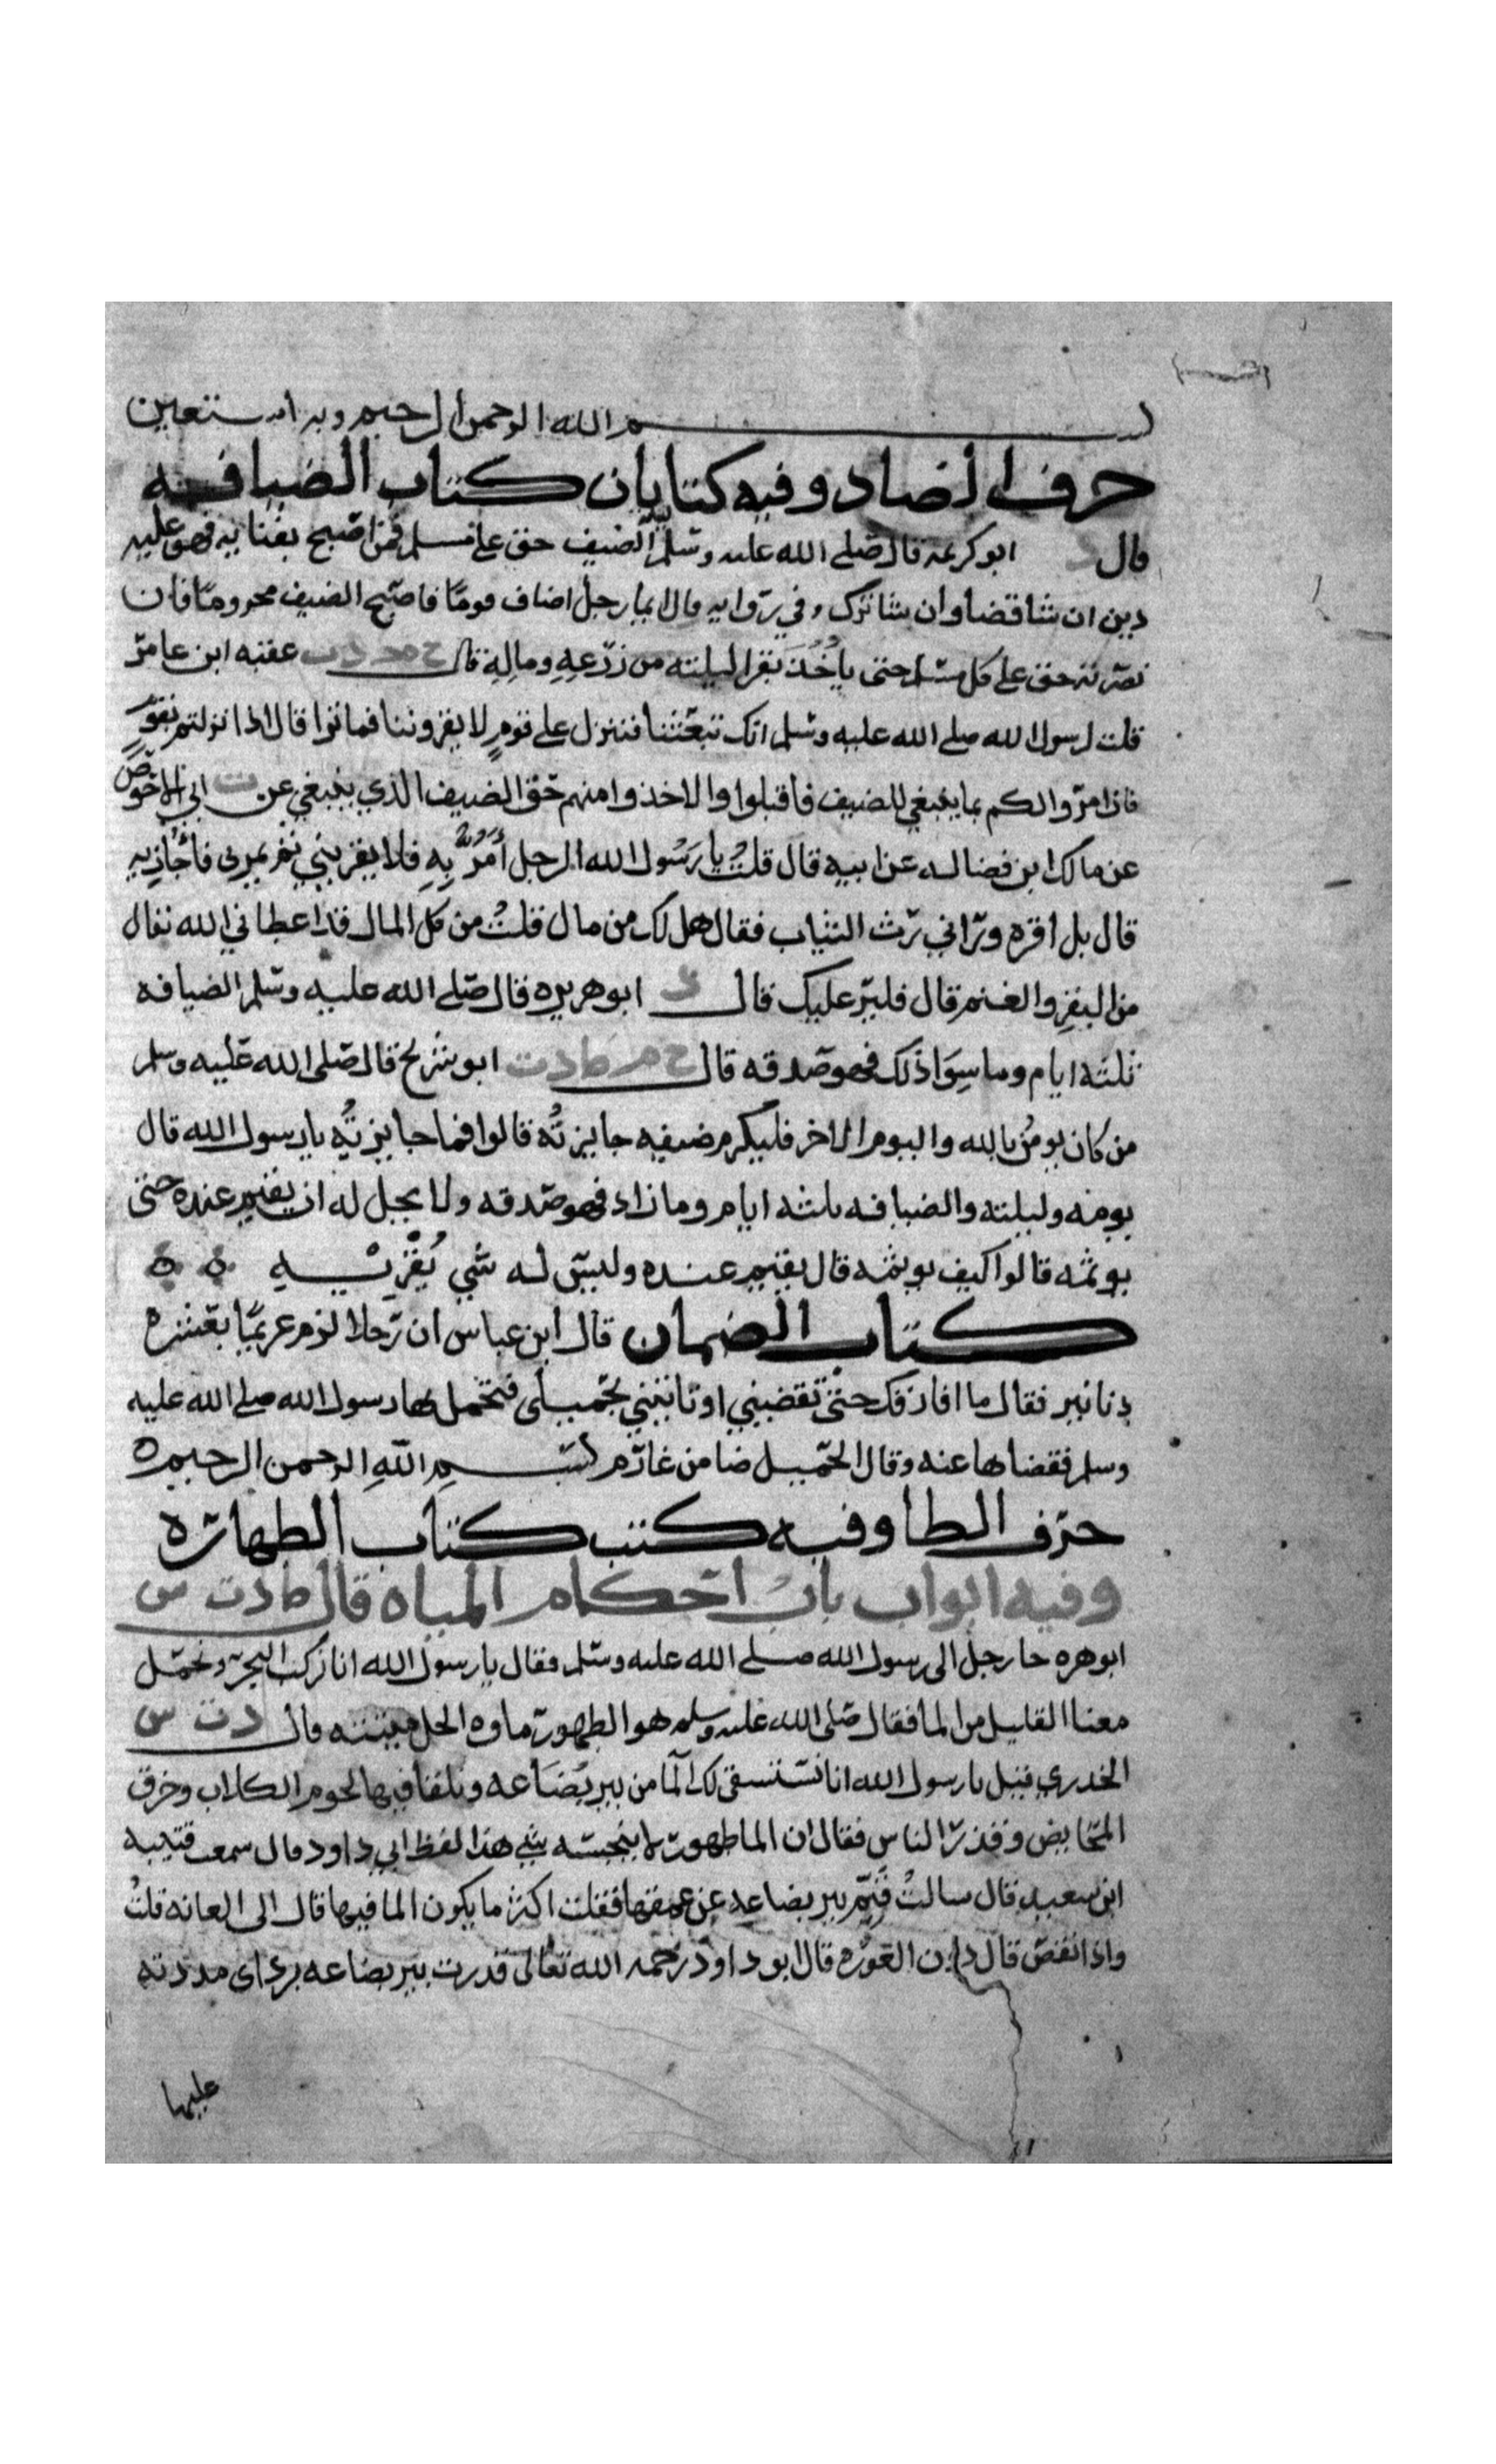 بسم الله الرحمن الرحيم وبه استعين
حرف الضاد وفيه كتابان كتاب الضيافه
قال د ابو كريمه قال صلى الله عليه وسلم الضيف حق على مسلم فمن اصبح بفنايه فهو عليه
دين ان شا قضا وان شا ترك وفي روايه قال ايما رجل اضاف قوما فاصبح الضيف محروما فان
نصرته حق على كل مسلم حتى ياخذ بقرا ليلته من زرعه وماله قال خ م د ت عقبه ابن عامر
قلت لرسول الله صلى الله عليه وسلم انك تبعثنا فننزل على قوم لا يقروننا فما ترا قال اذا نزلتم بقوم
فان امروا لكم بما ينبغي للضيف فاقبلوا والا خذوا منهم حق الضيف الذي ينبغي عن ت ابي الاحوص
عن مالك ابن فضاله عن ابيه قال قلت يا رسول الله الرجل أمر به فلا يقريني ثم يمر بى فأجازيه
قال بل اقره وراني رث الثياب فقال هل لك من مال فقلت من كل المال قد اعطاني الله تعال
من البقر والغنم قال فلير عليك قال د ابو هريره قال صلى الله عليه وسلم الضيافه
ثلثه ايام وما سوا ذلك فهو صدقه قال خ م ط د ت ابو شريح قال صلى الله عليه وسلم
من كان يومن بالله واليوم الاخر فليكرم ضيفه جايزته قالوا فما جايزته يا رسول الله قال
يومه وليلته والضيافه ثلثه ايام وما زاد فهو صدقه ولا يحل له ان يقيم عنده حتى
يوثمه قالوا كيف يوثمه قال يقيم عنده وليس له شي يقريه ه ه
كتاب الضمان قال ابن عباس ان رجلا لزم غريما بعشره
دنانير فقال ما افارقك حتى تقضيني او تاتيني بحميل فتحمل بها رسول الله صلى الله عليه
وسلم فقضاها عنه وقال الحميل ضامن غارم بسم الله الرحمن الرحيم ه
حرف الطا وفيه كتب كتاب الطهاره
وفيه ابواب باب احكام المياه قال ط د ت س
ابو هره جا رجل الى رسول الله صلى الله عليه وسلم فقال يا رسول الله انا نركب البحر ونحمل
معنا القليل من الما فقال صلى الله عليه وسلم هو الطهور ماوه الحل ميتته قال د ت س
الخدري قيل يا رسول الله انا نستسقى لك الما من بير بضاعه ويلقا فيها لحوم الكلاب وخرق
المحايض وقذر الناس فقال ان الما طهور لا ينجسه شي هذا لفظ ابي داود قال سمعت قتيبه
ابن سعيد قال سالت قيم بير بضاعه عن عمقها فقلت اكثر ما يكون الما فيها قال الى العانه قلت
واذا نقص قال دون العوره قال ابو داود رحمه الله تعالى قدرت بير بضاعه برداى مددته
عليها